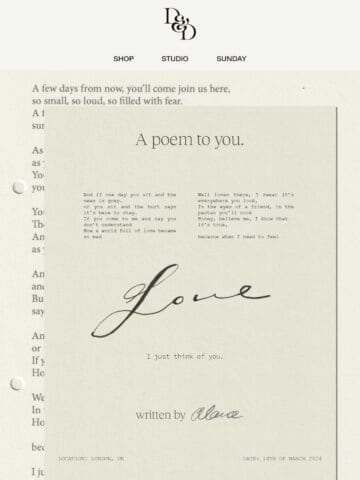 D&D
SHOP STUDIO SUNDAY
A few days from now, you'll come join us here,
so small, so loud, so filled with fear.
A poem to you.
And if one day you sit and the
news is grey.
or you sit and the hurt says
it's here to stay.
If you come to me and say you
don't understand
How a world full of love became
so mad
Well lover there, I swear it's
everywhere you look,
In the eyes of a friend, in the
pastas you'll cook
Money, believe me, I know that
it's true,
because when I need to feel
Love
I just think of you.
written by
LOCATION: LONDON, UK
DATE: 14TH OF MARCH 2024